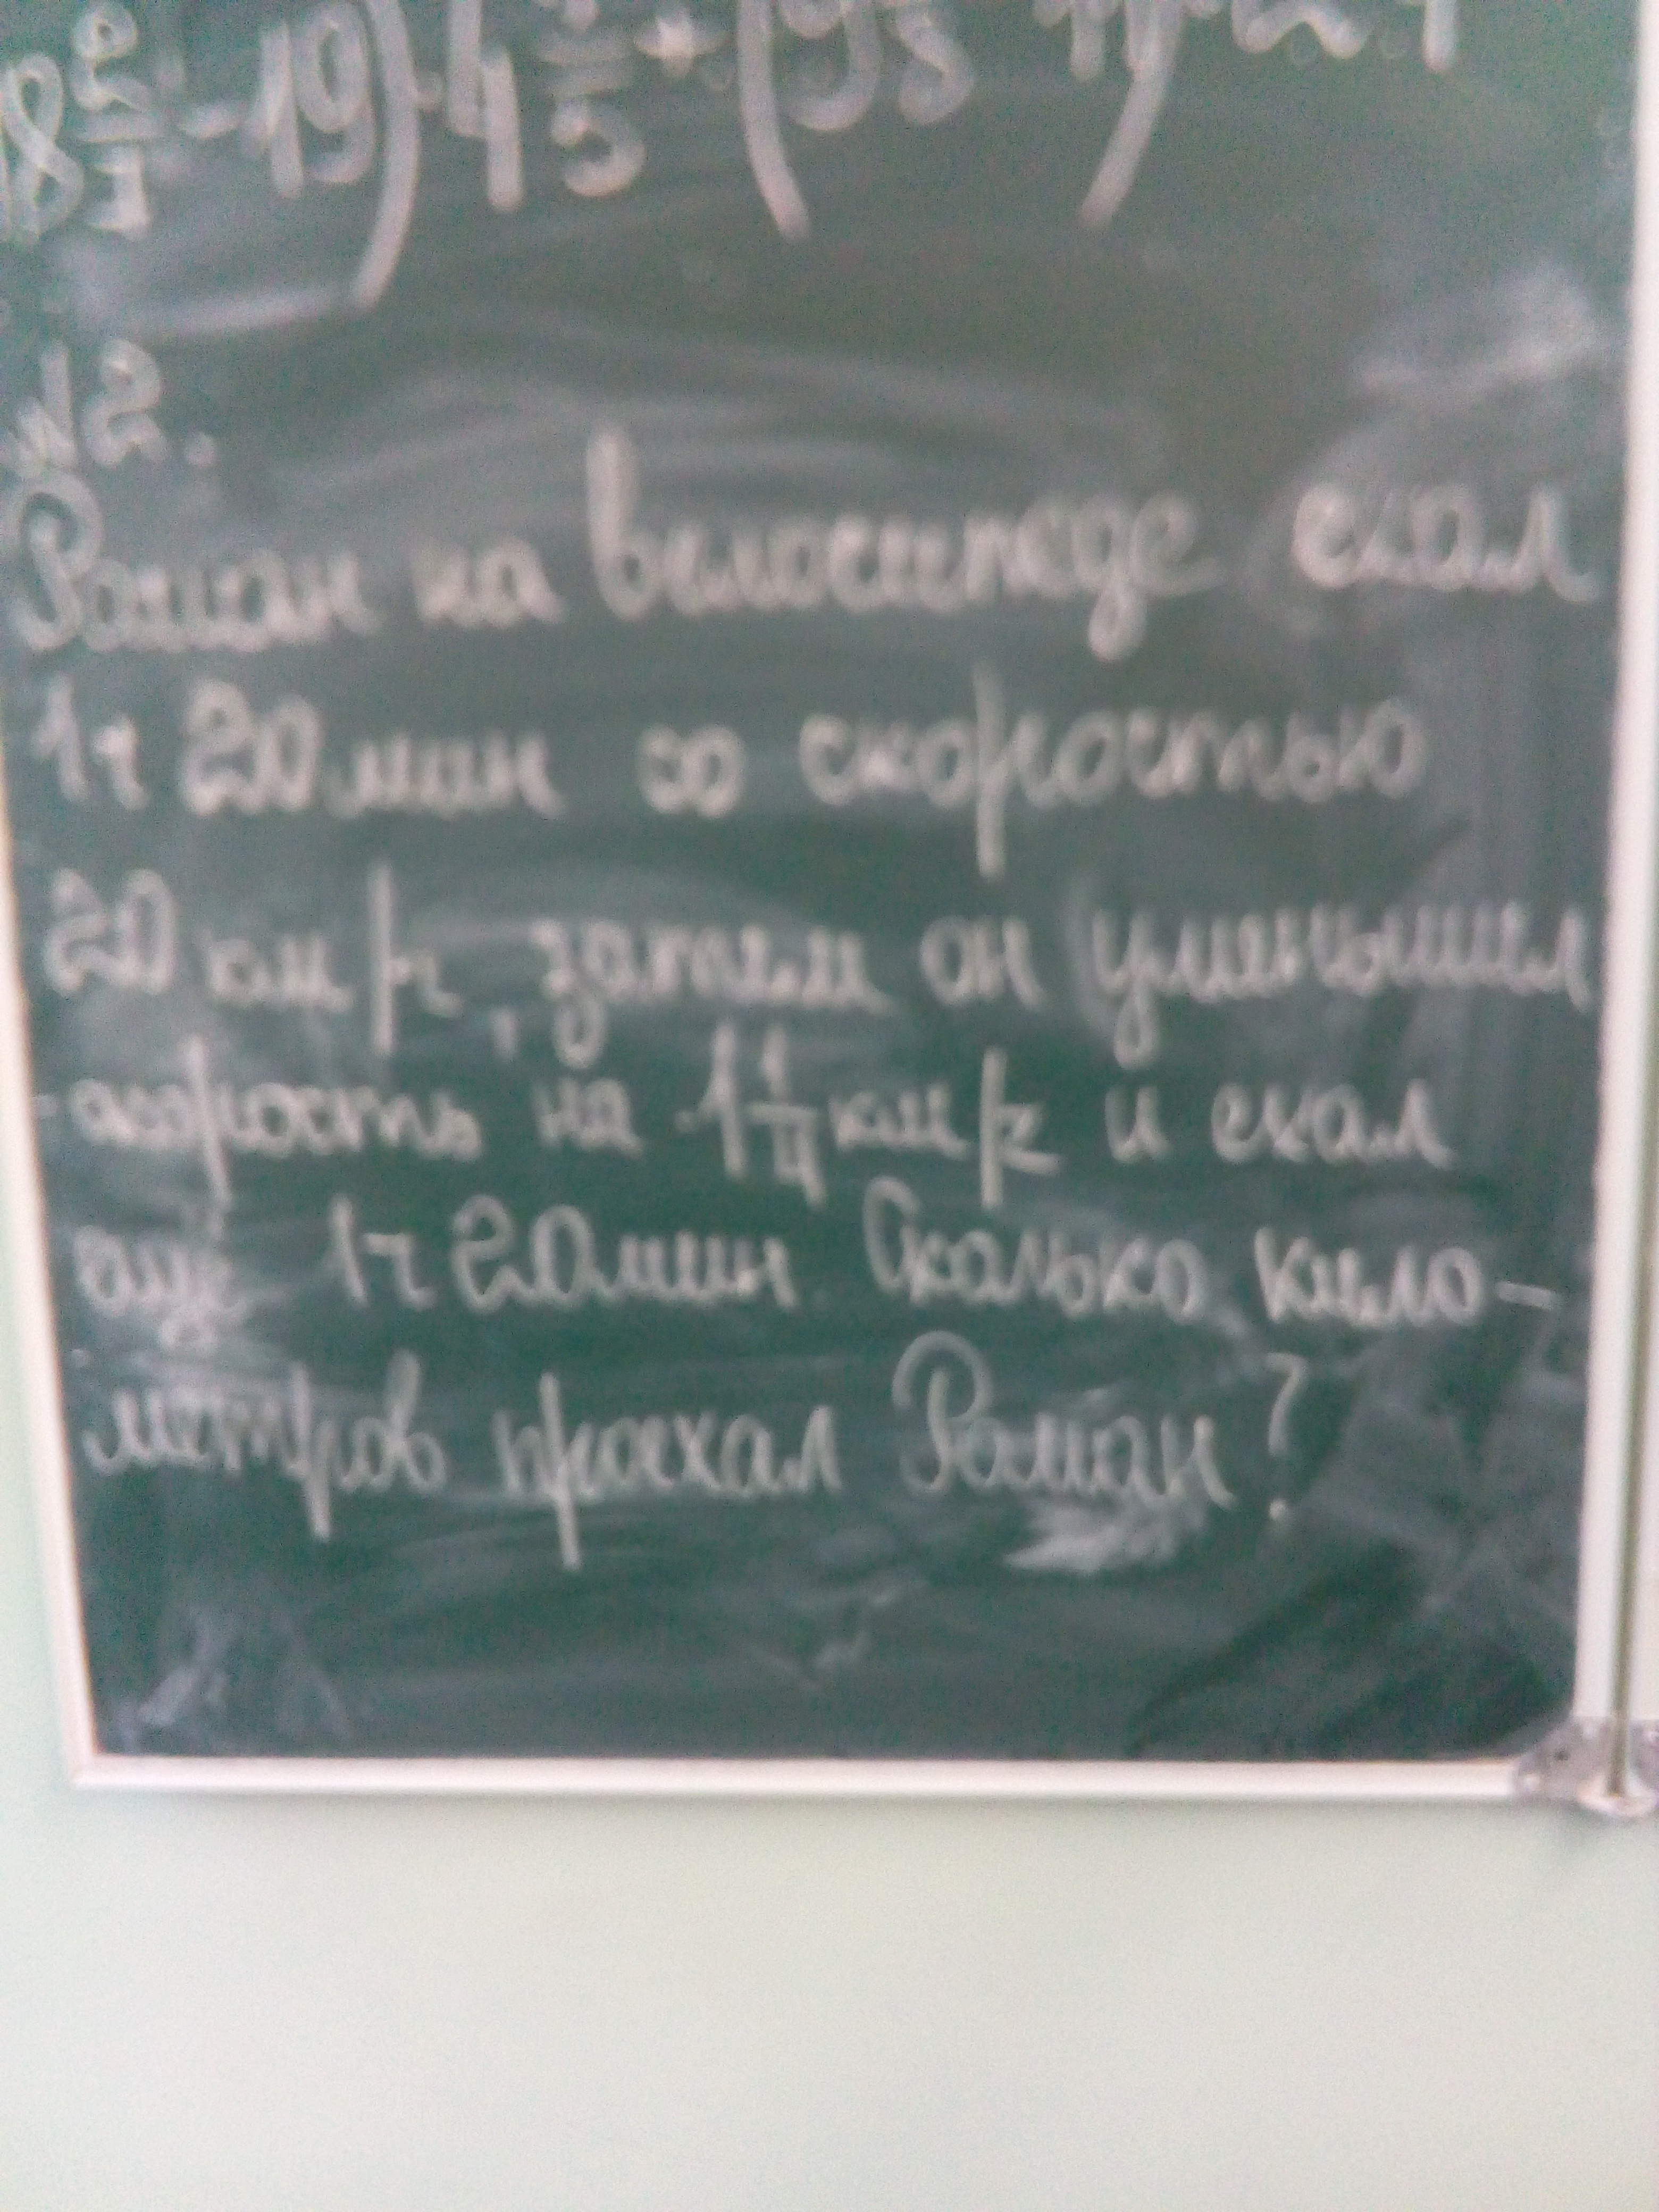 - 19) · 4
№2.
Роман на велосипеде ехал
1ч 20 мин со скоростью
20 км/ч, затем он уменьшил
скорость на 1 1/4 км/ч и ехал
еще 1ч 20 мин. Сколько кило-
метров проехал Роман?